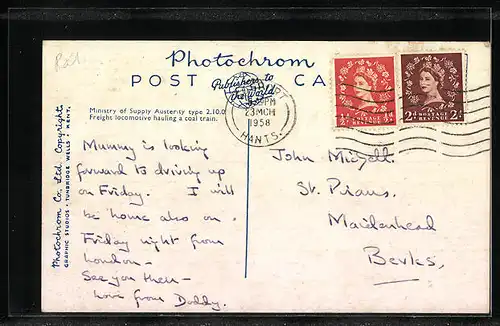 Rail
Photochrom
POST CA
Publishers to
the World
PM
23 MCH
1958
HANTS.
½ d
½ d
2 d POSTAGE REVENUE 2 d
Ministry of Supply Austerity type 2.10.0
Freight locomotive hauling a coal train.
Mummy is looking
forward to driving up
on Friday. I will
be home also on
Friday night from
London –
See you then –
Love from Daddy.
John
St. Pirans,
Maidenhead
Berks,
Photochrom Co. Ltd. Copyright.
GRAPHIC STUDIOS · TUNBRIDGE WELLS · KENT.